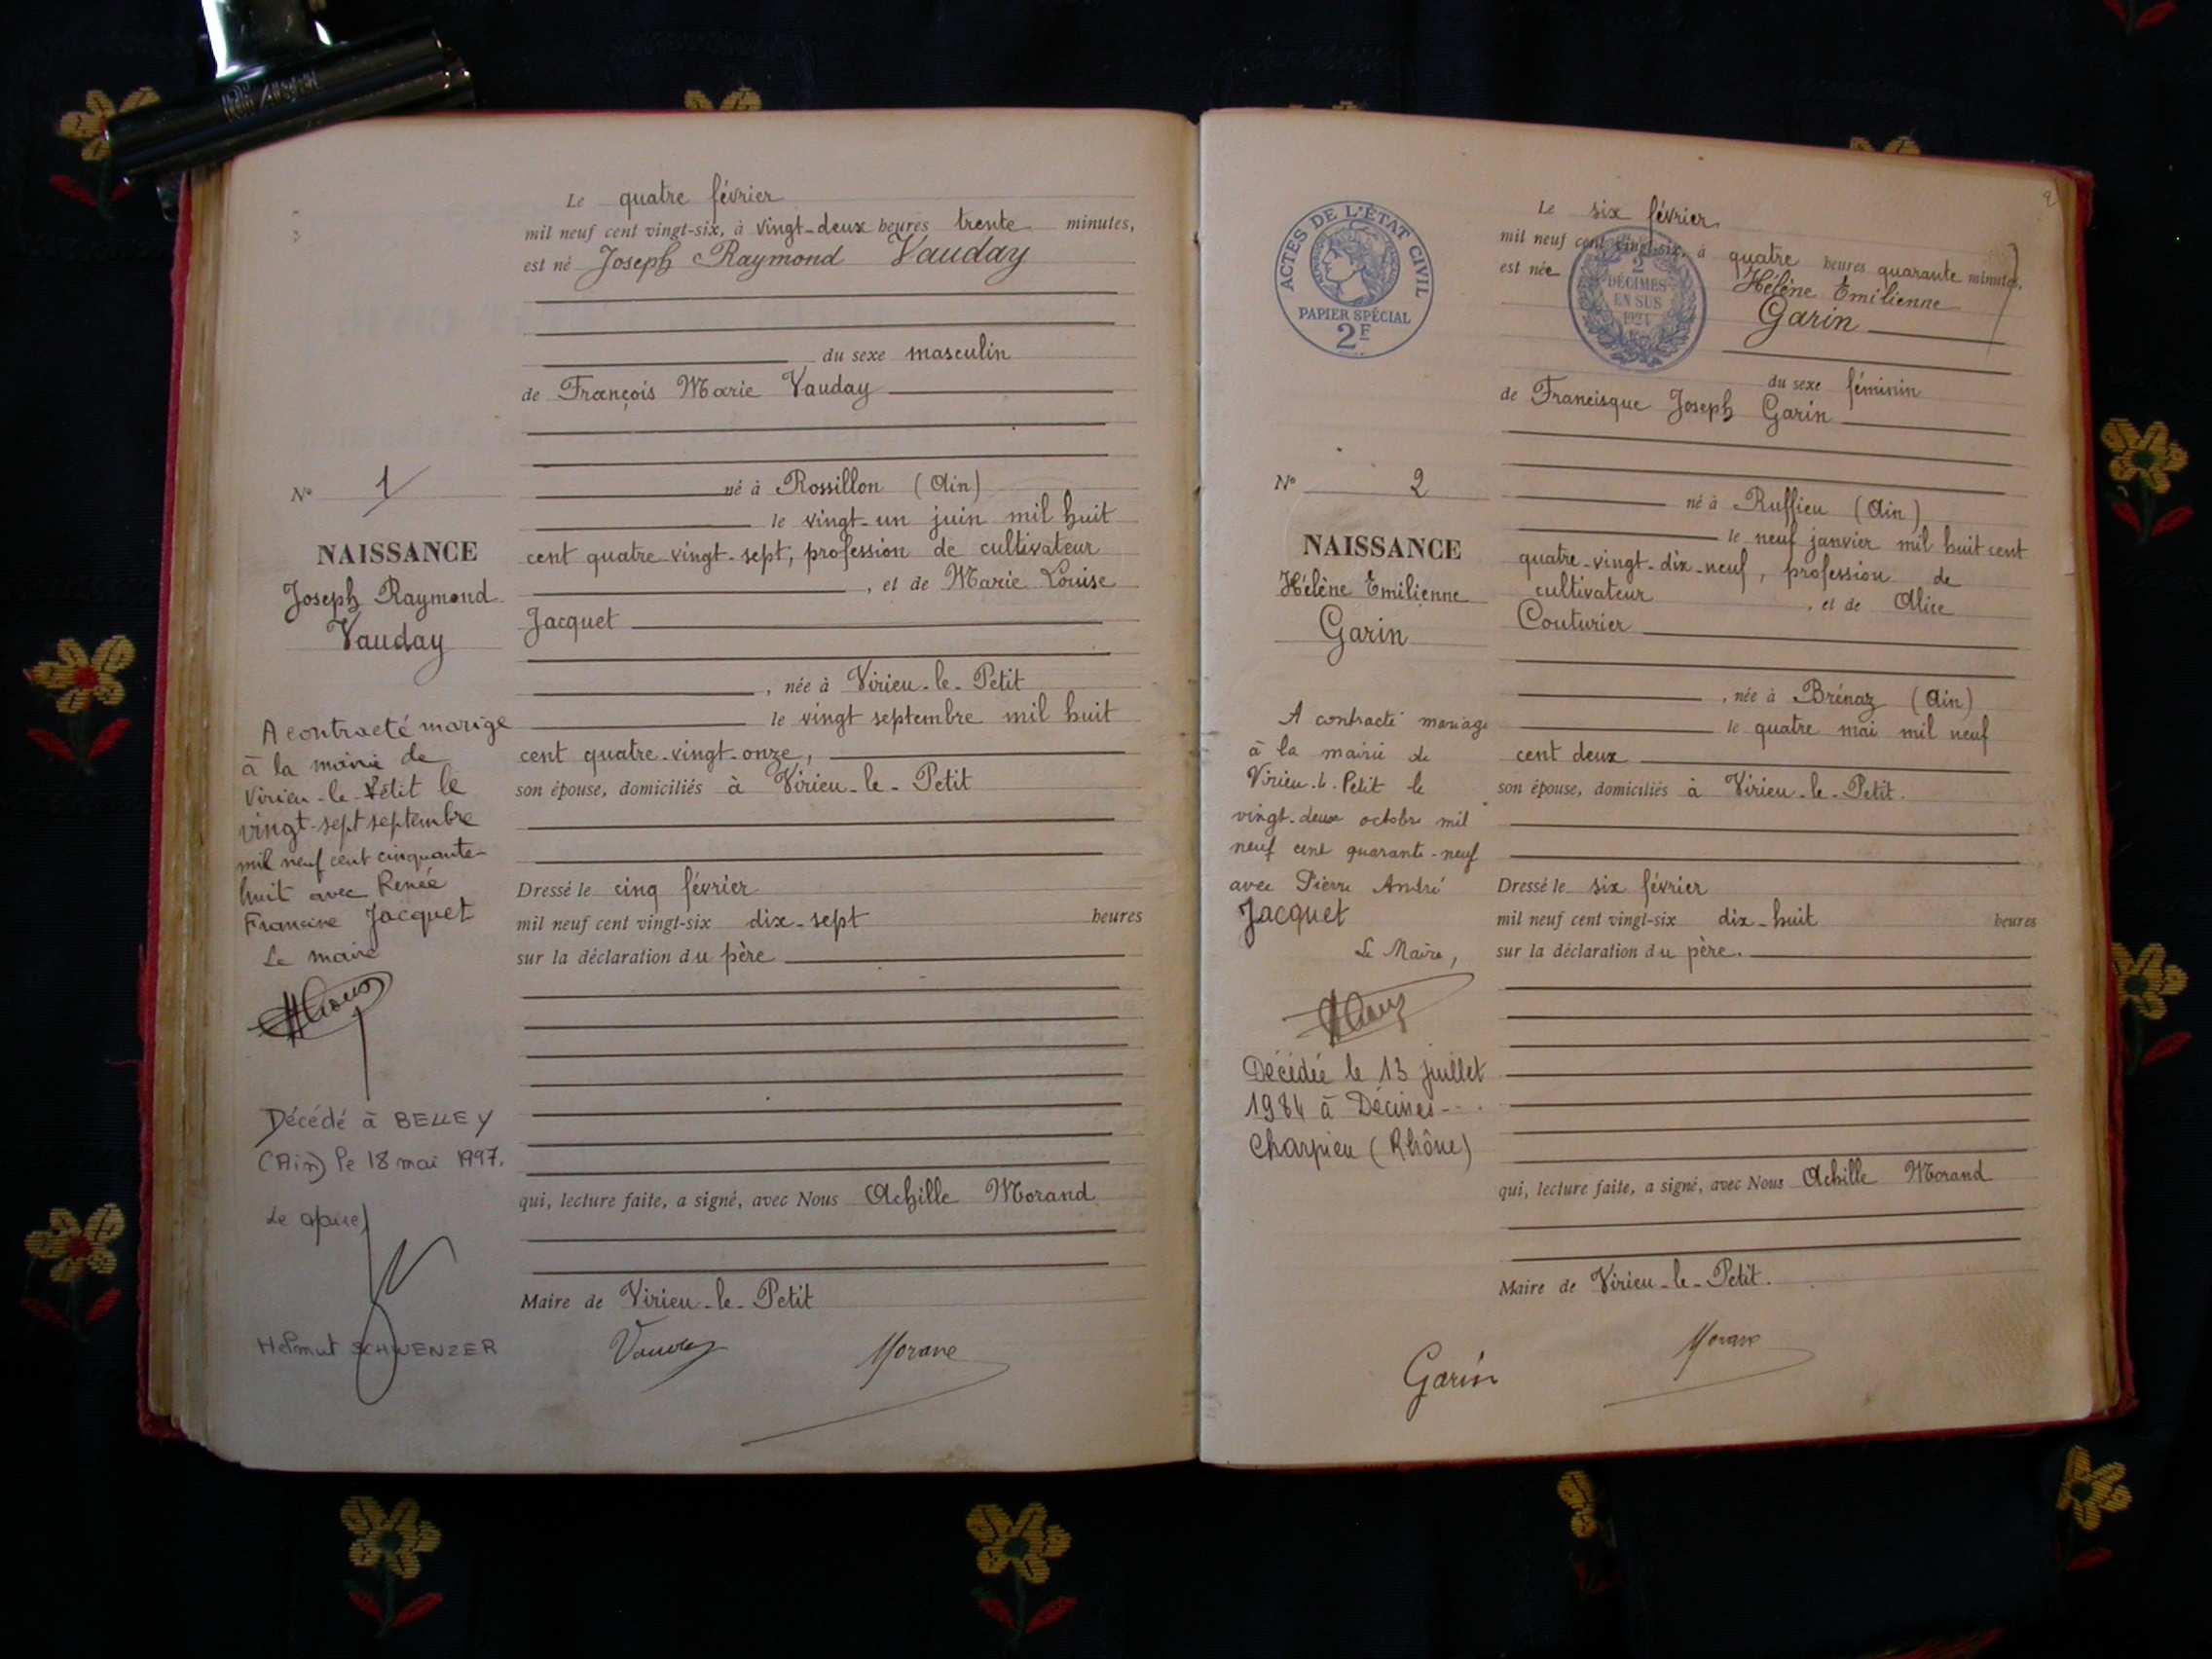 Le quatre février
mil neuf cent vingt-six, à vingt-deux heures trente minutes,
est né Joseph Raymond Vauday
du sexe masculin
de François Marie Vauday
né à Rossillon (Ain)
le vingt-un juin mil huit
cent quatre-vingt-sept, profession de cultivateur
, et de Marie Louise
Jacquet
, née à Virieu-le-Petit
le vingt septembre mil huit
cent quatre-vingt-onze,
son épouse, domiciliés à Virieu-le-Petit
Dressé le cinq février
mil neuf cent vingt-six dix-sept heures
sur la déclaration du père
qui, lecture faite, a signé, avec Nous Achille Morand
Maire de Virieu-le-Petit
Vauday Morand
N° 1
NAISSANCE
Joseph Raymond
Vauday
A contracté marige
à la mairie de
Virieu-le-Petit le
vingt-sept septembre
mil neuf cent cinquante-
huit avec Renée
Francine Jacquet
Le maire
Décédé à BELLEY
(Ain) le 18 mai 1997.
Le Maire
Helmut SCHWENZER
2
ACTES DE L'ÉTAT CIVIL
PAPIER SPÉCIAL
2F
2
DÉCIMES
EN SUS
1924
Le six février
mil neuf cent vingt-six, à quatre heures quarante minutes,
est née Hélène Emilienne
Garin
du sexe féminin
de Francisque Joseph Garin
né à Ruffieu (Ain)
le neuf janvier mil huit cent
quatre-vingt-dix-neuf, profession de
cultivateur , et de Alice
Couturier
, née à Brénaz (Ain)
le quatre mai mil neuf
cent deux
son épouse, domiciliés à Virieu-le-Petit.
Dressé le six février
mil neuf cent vingt-six dix-huit heures
sur la déclaration du père.
qui, lecture faite, a signé, avec Nous Achille Morand
Maire de Virieu-le-Petit.
Garin Morand
N° 2
NAISSANCE
Hélène Emilienne
Garin
A contracté mariage
à la mairie de
Virieu-le-Petit le
vingt-deux octobre mil
neuf cent quarante-neuf
avec Pierre André
Jacquet
Le Maire,
Décédée le 13 juillet
1984 à Décines-
Charpieu (Rhône)